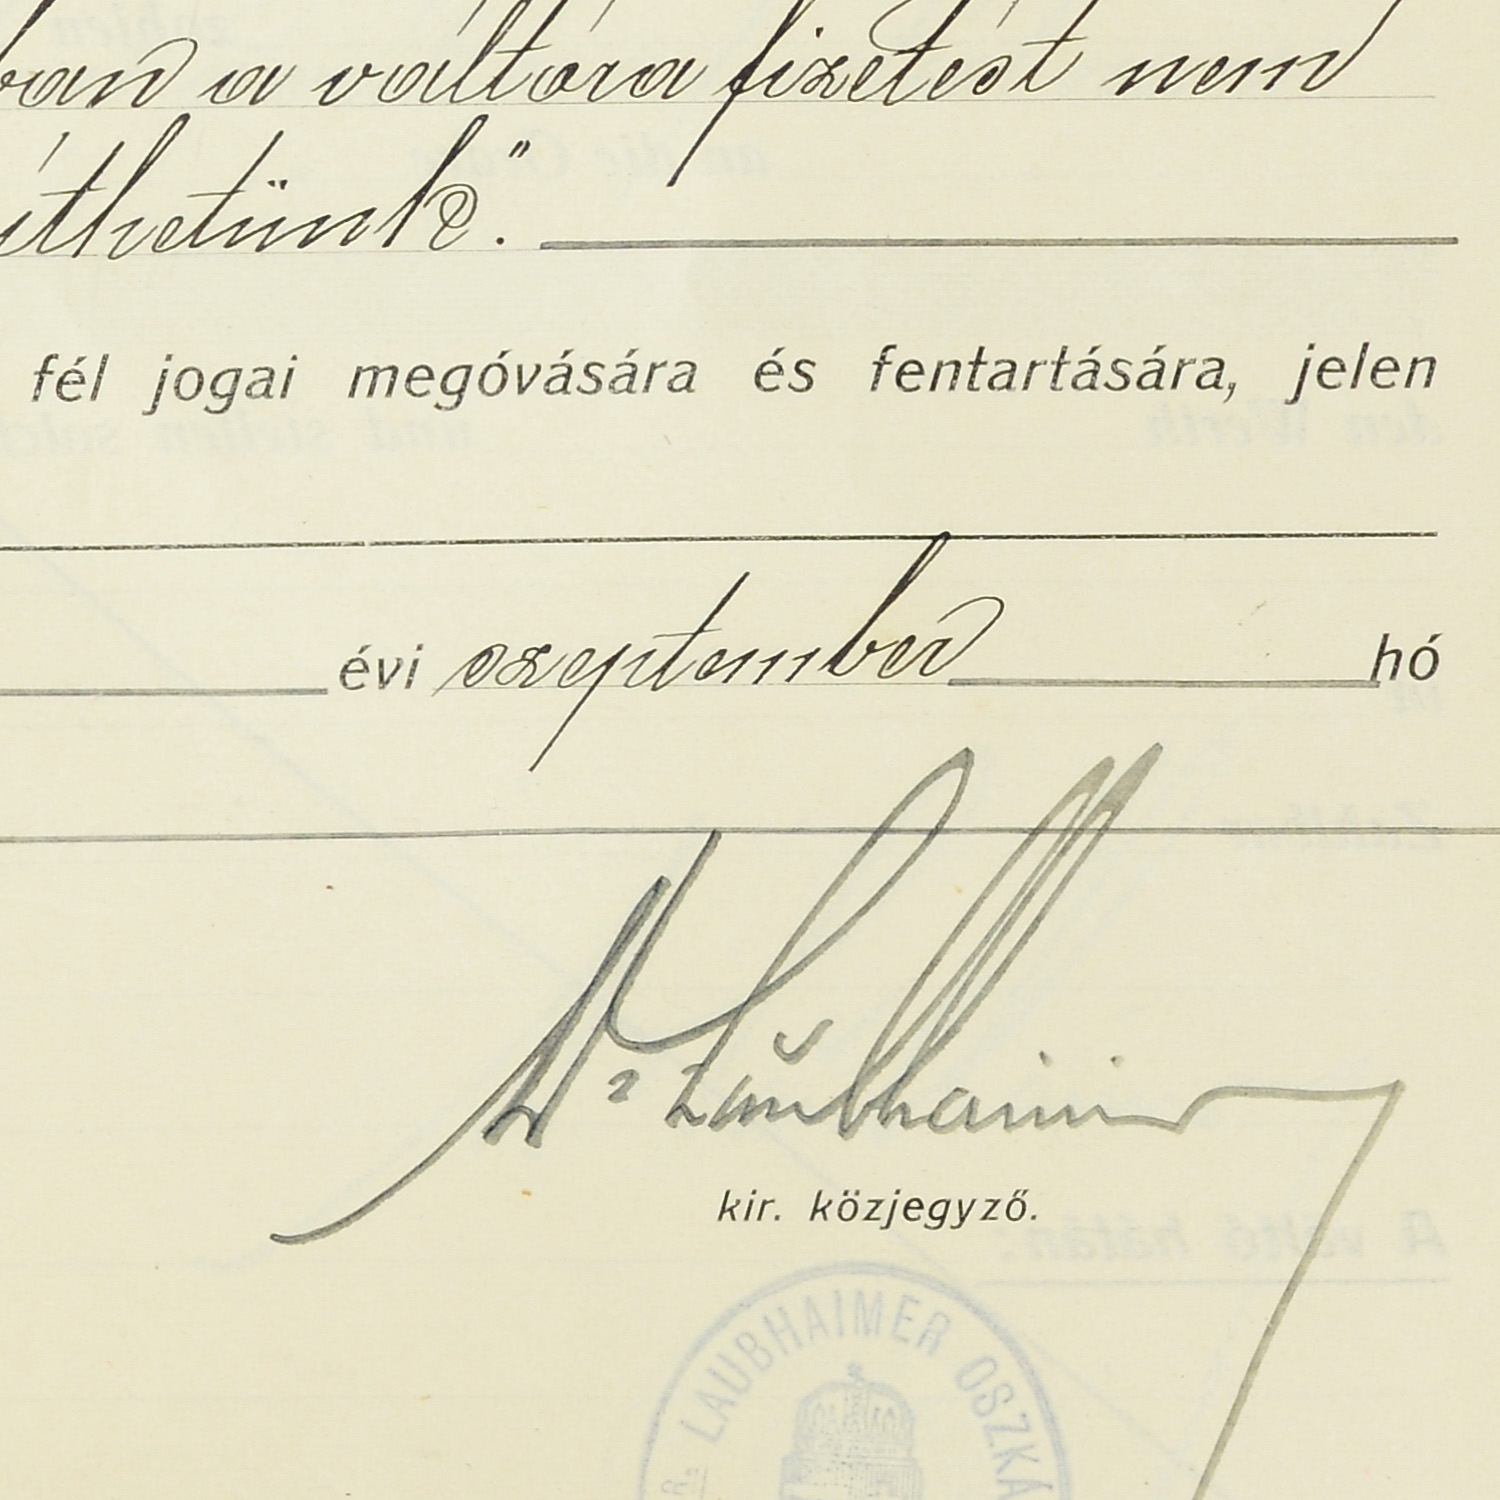 ban a váltóra fizetést nem
íthetünk".
fél jogai megóvására és fentartására, jelen
évi szeptember hó
Dr Laubhaimer
kir. közjegyző.
DR. LAUBHAIMER OSZKÁ